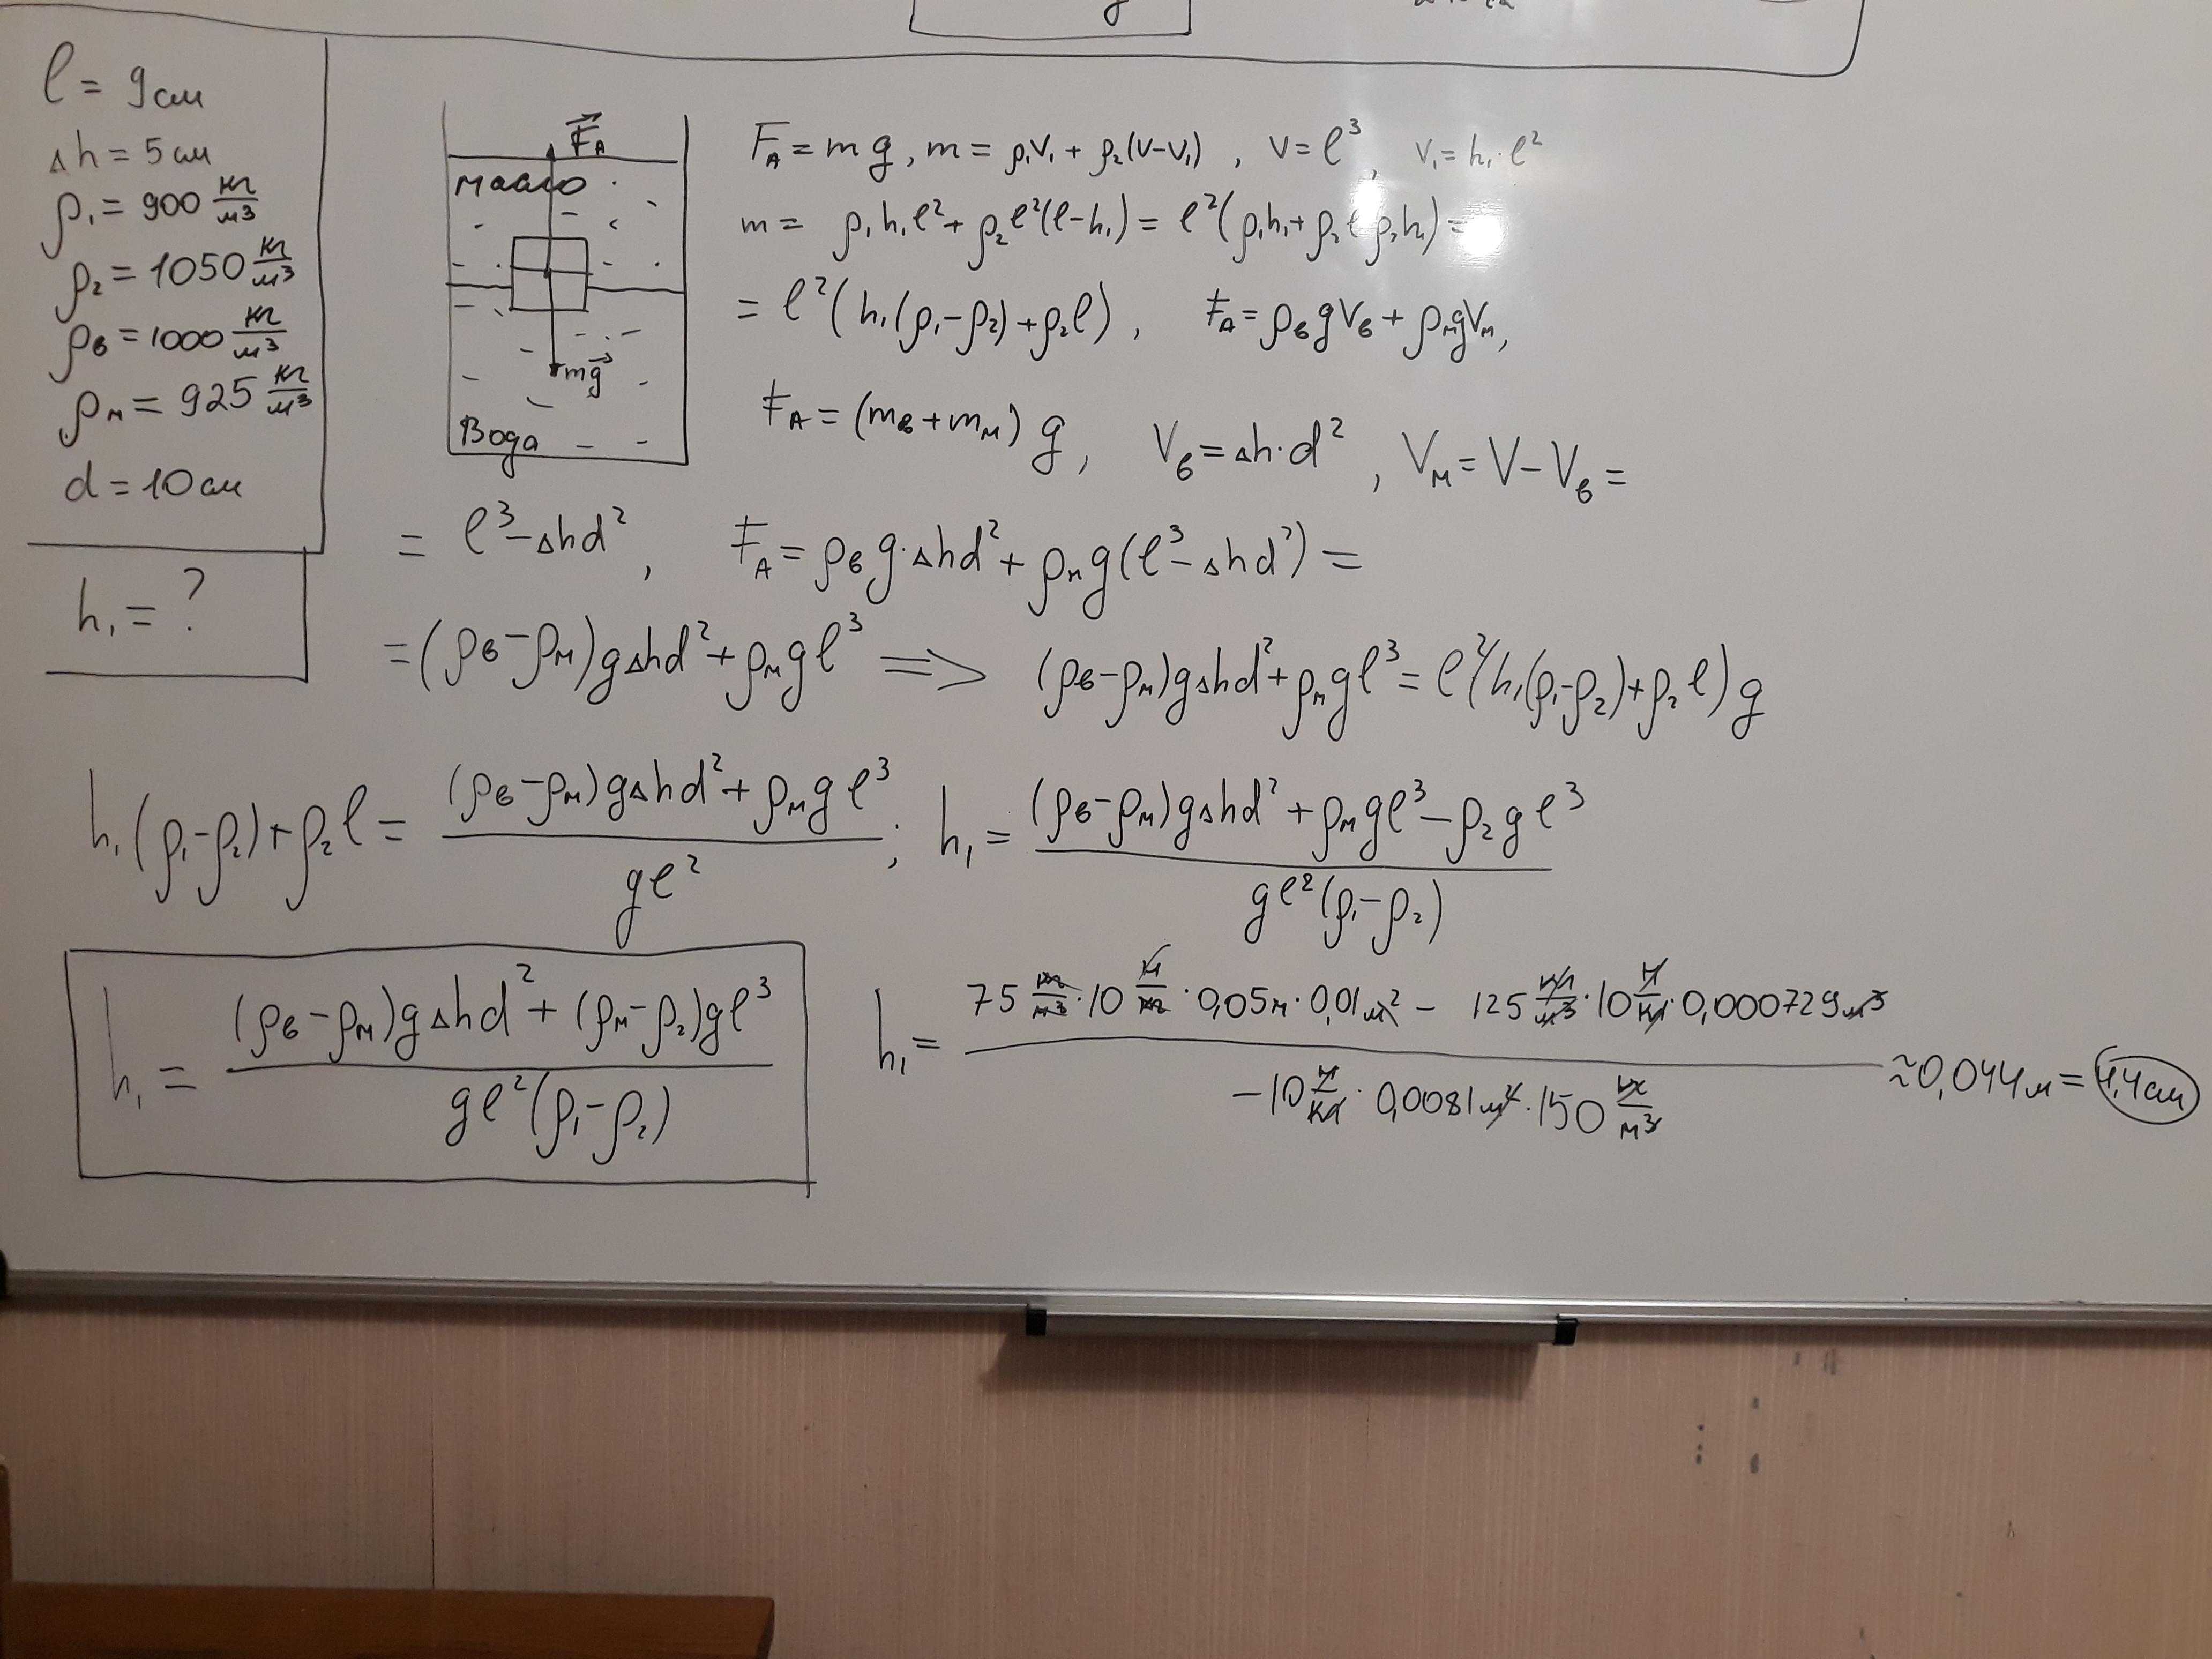 l = 9 см
Δh = 5 см
ρ₁ = 900 кг/м³
ρ₂ = 1050 кг/м³
ρв = 1000 кг/м³
ρм = 925 кг/м³
d = 10 см
h₁ = ?
F⃗A
масло
mg⃗
Вода
FA = mg, m = ρ₁V₁ + ρ₂(V−V₁), V = l³, V₁ = h₁·l²
m = ρ₁h₁l² + ρ₂l²(l−h₁) = l²(ρ₁h₁ + ρ₂l ρ₂h₁) =
= l²(h₁(ρ₁−ρ₂)+ρ₂l), FA = ρвgVв + ρмgVм,
FA = (mв+mм)g, Vв = Δh·d², Vм = V−Vв =
= l³−Δhd², FA = ρвg·Δhd² + ρмg(l³−Δhd²) =
= (ρв−ρм)gΔhd² + ρмgl³ => (ρв−ρм)gΔhd² + ρмgl³ = l²(h₁(ρ₁−ρ₂)+ρ₂l)g
h₁(ρ₁−ρ₂)+ρ₂l = ((ρв−ρм)gΔhd² + ρмgl³)/(gl²); h₁ = ((ρв−ρм)gΔhd² + ρмgl³ − ρ₂gl³)/(gl²(ρ₁−ρ₂))
h₁ = ((ρв−ρм)gΔhd² + (ρм−ρ₂)gl³)/(gl²(ρ₁−ρ₂))
h₁ = (75 кг/м³·10 Н/кг·0,05м·0,01м² − 125 кг/м³·10 Н/кг·0,000729м³)/(−10 Н/кг·0,0081м²·150 кг/м³) ≈0,044м = 4,4см